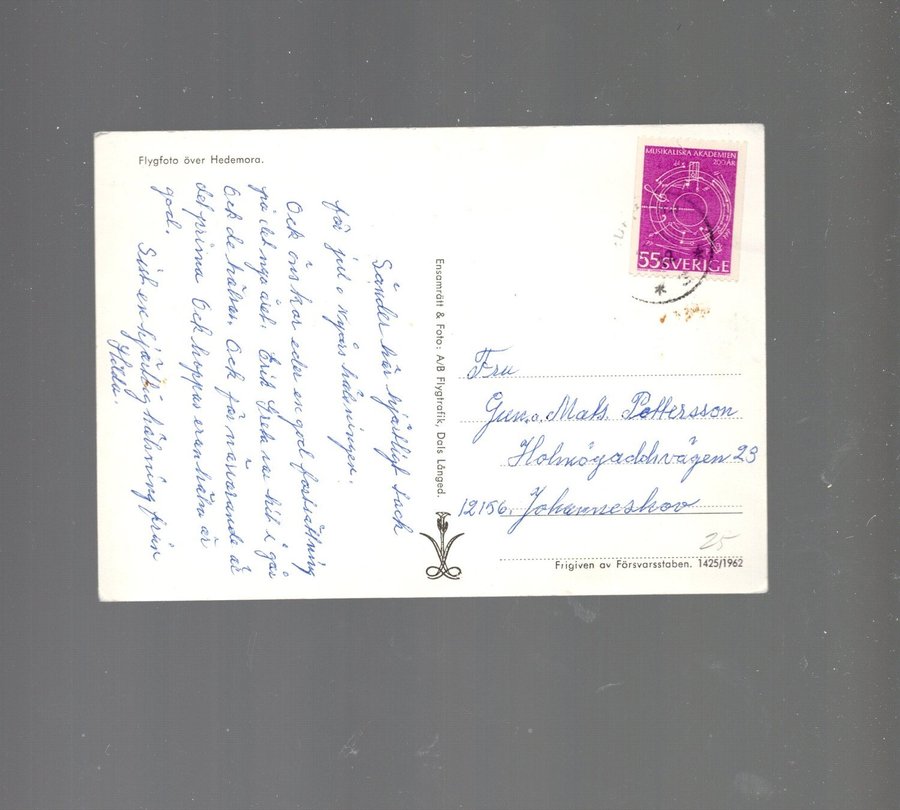 Flygfoto över Hedemora.
Sänder här hjärtligt tack
för jul o nyårs hälsningen.
Ock önskar eder en god fortsättning
på det nya året. Erik Greta var hit i går
Ock de hälsar. Ock för närvarande är
det prima Ock hoppas eran hälsa är
god.
Sist en hjärtlig hälsning från
Hilda.
Ensamrätt & Foto: A/B Flygtrafik, Dals Långed.
MUSIKALISKA AKADEMIEN
200 ÅR
55 SVERIGE
Fru
Gun o. Mats Pettersson
Holmögaddsvägen 23
12156. Johanneshov
25
Frigiven av Försvarsstaben. 1425/1962